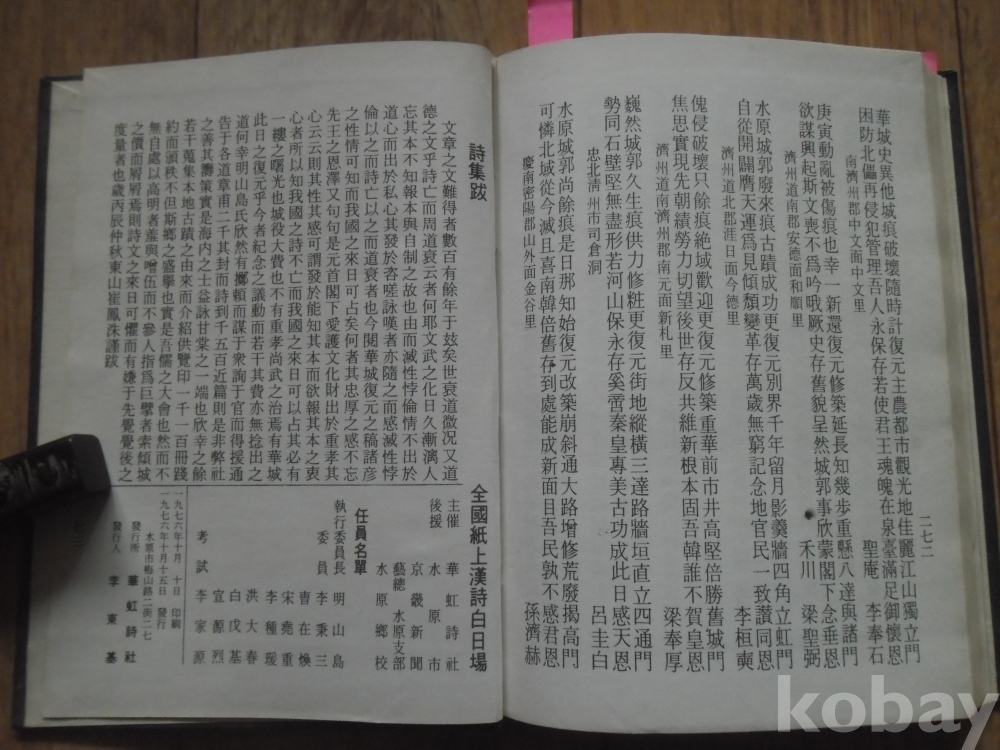 二七二
華城史異他城痕破壞隨時計復元主農都市觀光地佳麗江山獨立門
困防北儡再侵犯管理吾人永保存若使君王魂魄在泉臺滿足御懷恩
南濟州郡中文面中文里 聖庵 李奉石
庚寅動亂被傷痕也幸一新還復元修築延長知幾步重懸八達與諸門
欲謀興起斯文喪不爲吟哦厥史存舊貌呈然城郭事欣蒙閣下念垂恩
濟州道南郡安德面和順里 禾川 梁聖弼
水原城郭廢來痕古蹟成功更復元別界千年留月影羹牆四角立虹門
自從開闢膺天運爲見傾頹變革存萬歲無窮記念地官民一致讚同恩
濟州道北郡涯日面今德里 李桓奭
傀侵破壞只餘痕絶域歡迎更復元修築重華前市井高堅倍勝舊城門
焦思實現先朝績勞力切望後世存反共維新根本固吾韓誰不賀皇恩
濟州道南濟州郡南元面新札里 梁奉厚
巍然城郭久生痕供力修粧更復元街地縱橫三達路牆垣直立四通門
勢同石壁堅無盡形若河山保永存奚啻秦皇專美古功成此日感天恩
忠北淸州市司倉洞 呂圭白
水原城郭尚餘痕是日那知始復元改築崩斜通大路增修荒廢揭高門
可憐北域從今滅且喜南韓倍舊存到處能成新面目吾民孰不感君恩
慶南密陽郡山外面金谷里 孫濟赫
詩集跋
文章之文難得者數百有餘年于玆矣世衰道微况又道
德之文乎詩亡而周道衰云者何耶文武之化日久漸漓人
忘其本不知報本與自制之故也由而滅性悖倫情不出於
道心而出於私心其發於咨嗟詠嘆者亦隨之而感滅性悖
倫以之而詩亡以之而道衰者也今閱華城復元之稿諸彥
之性情可知而我國之來日可占矣何者其忠厚之感不忘
先王之恩澤又句句是元首閣下愛護文化財出於重孝其
心云云則其性其感可謂發於能知其本而欲報其本之衷
心者所以知我國之詩不亡而我國之來日可以占其必有
一縷之曙光也城役大費也不有重孝尚武之治焉有華城
此日之復元乎今者紀念之議動而若干其費亦無捻出之
道何幸明山島氏欣然有擲頼而謀于衆詢于官而得援通
告于各道章甫二千其封而詩到千五百近篇則是非弊社
之善其籌策實是海內之士益詠甘棠之一端也欣幸之餘
若干蒐集本地古蹟之由來而介紹供覽印一千一百冊踐
約而頒秩不但斯鄉之盛擧也實是吾儒之大會也然而不
無自處以高明者羞與噲伍而不參人指爲巨擘者索頹城
之價而屑屑焉則詩文之來日可懼而有嫌于先覺後之
度量者也歲丙辰仲秋東山崔鳳洙謹跋
全國紙上漢詩白日場
主催 華虹詩社
後援 水原市
京畿新聞
藝總水原支部
水原鄉校
任員名單
執行委員長 明山島
委員 李秉三
曺在煥
宋堯重
李種瑗
洪大春
白戊基
宣源烈
考試 李家源
一九七六年十月十日 印刷
一九七六年十月十五日 發行
水原市梅山路二街二七
發行所 華虹詩社
發行人 李東基
kobay